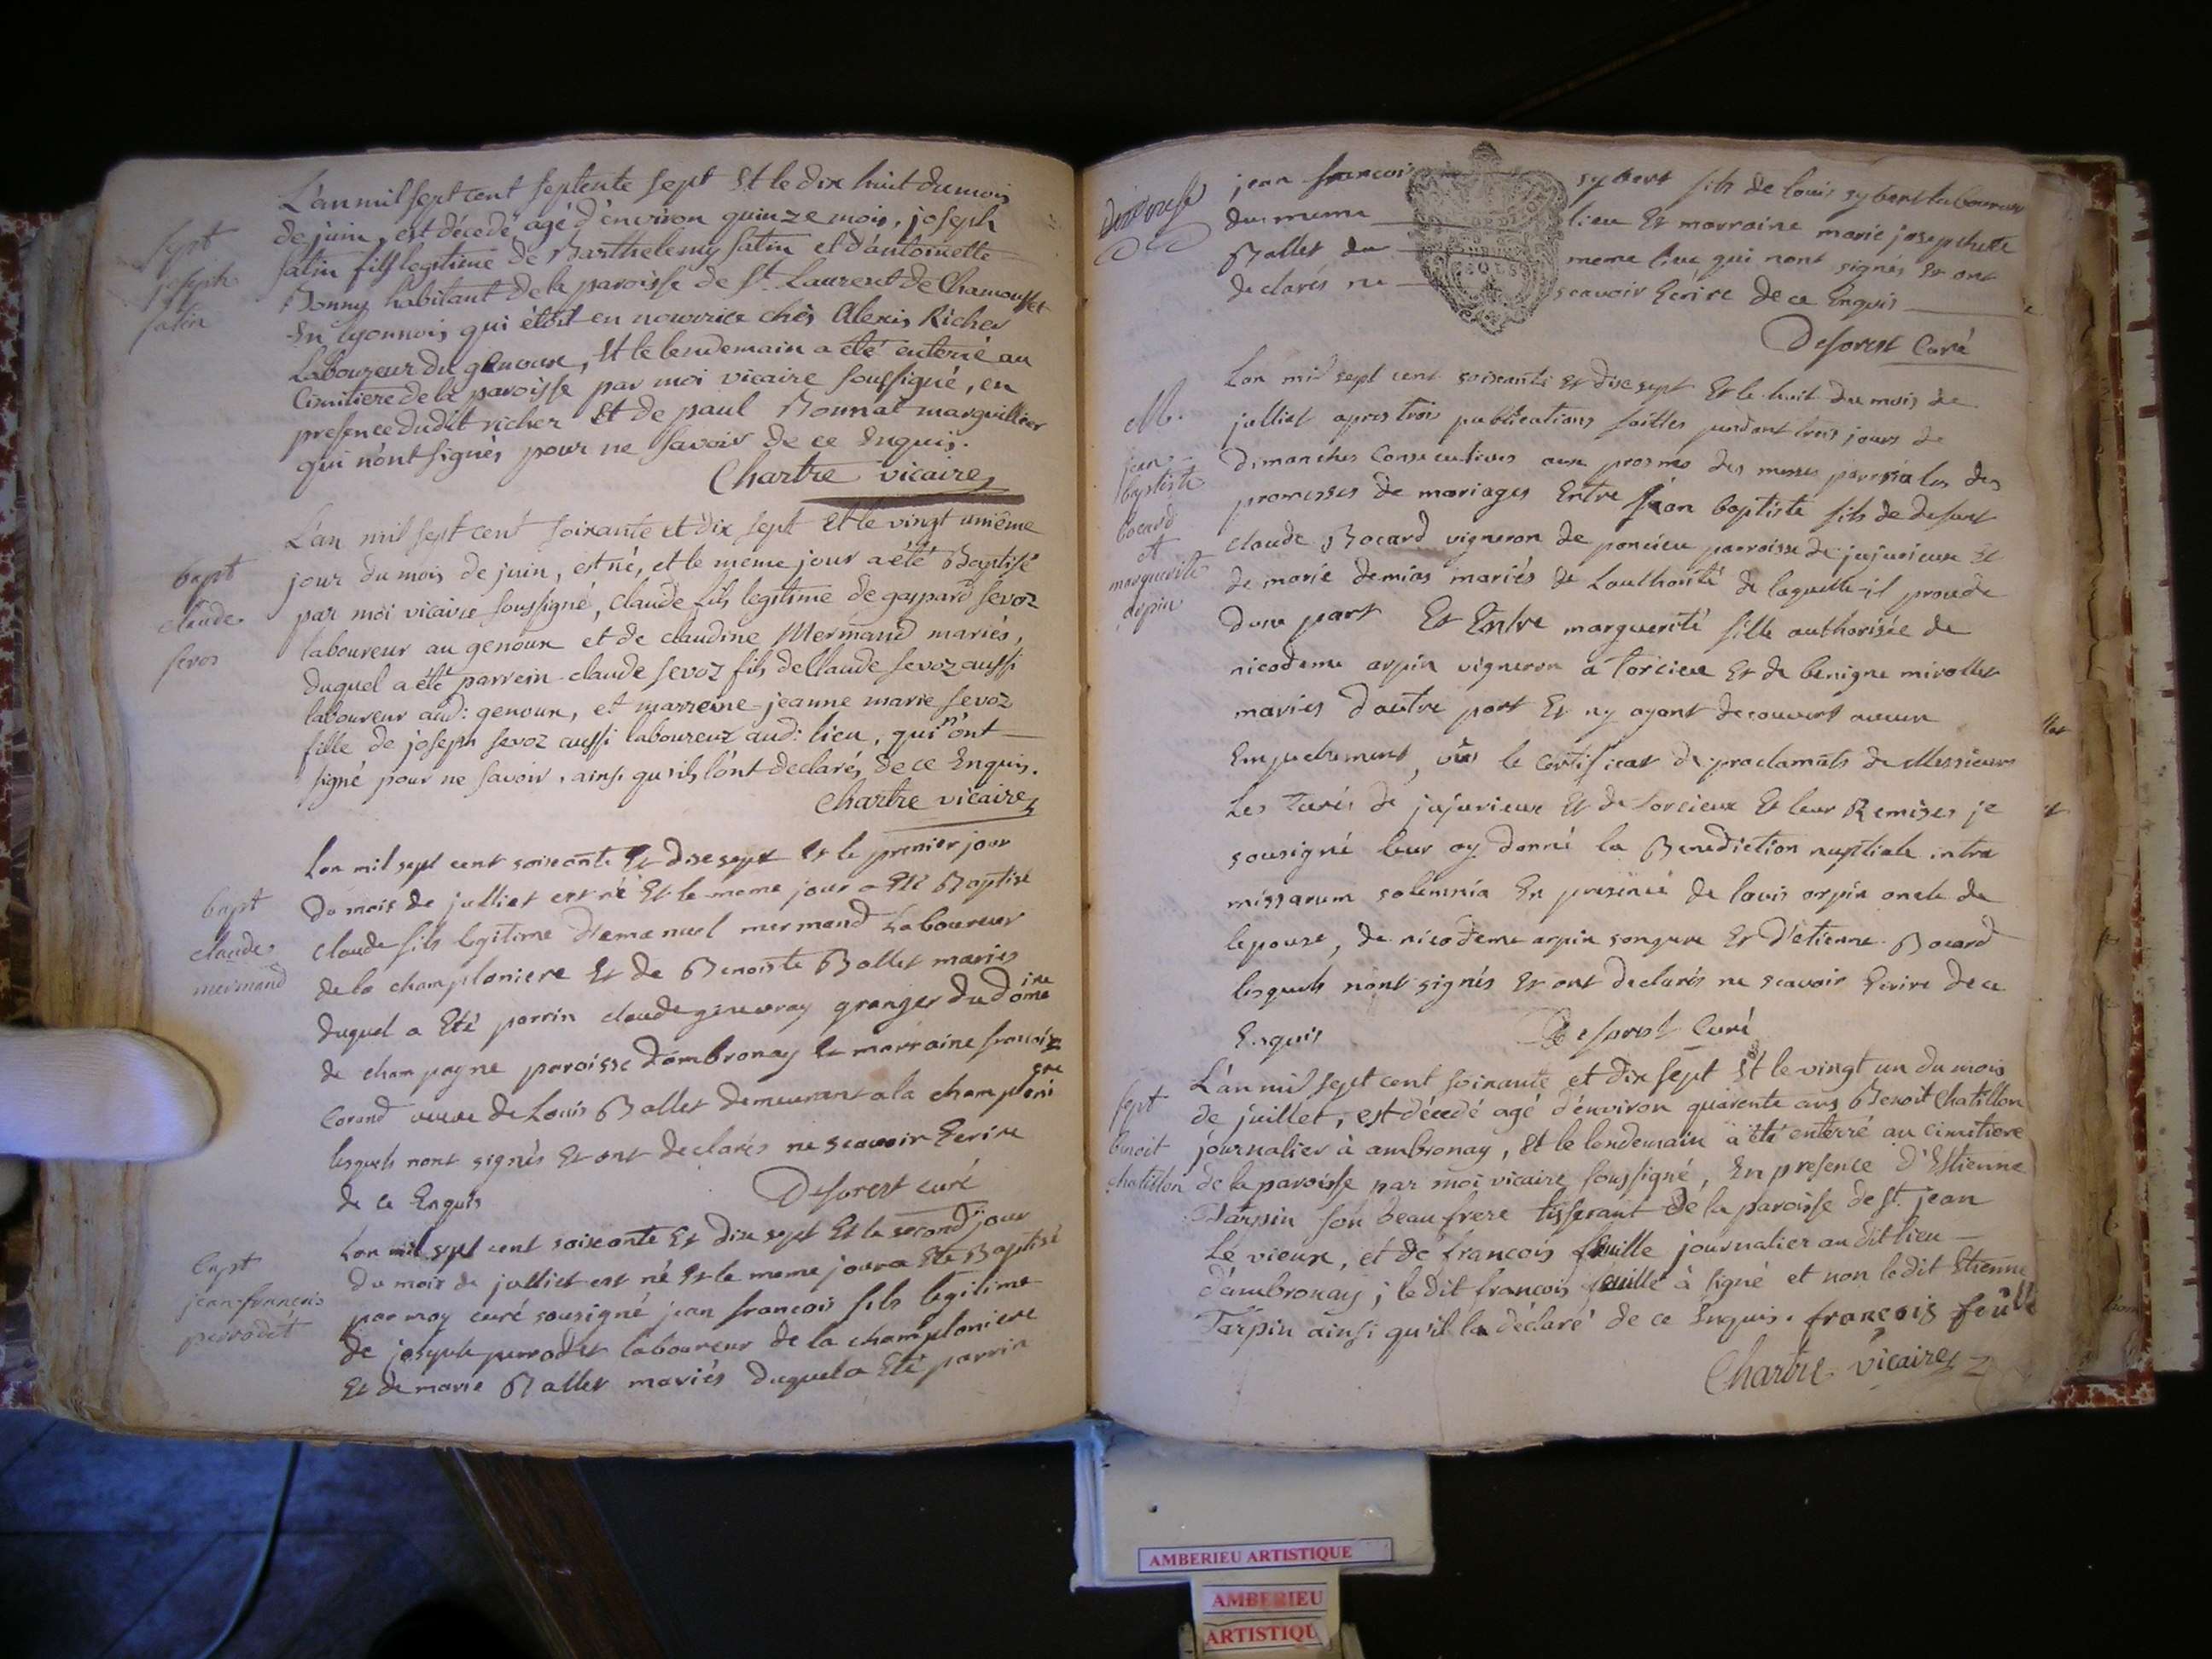 L'an mil sept cent septente sept Et le dix huit du mois
de juin, est décedé agé d'environ quinze mois, joseph
Satin fils legitime de Barthelemy Satin et d'antoinette
Bonny habitant de la paroisse de St. Laurent de Chamousset
En lyonnois qui étoit en nourrice chés Alexis Richer
Laboureur du genoux, Et le lendemain a été enterré au
Cimitiere de la paroisse par moi vicaire soussigné, en
presence dudit richer Et de paul Bonnat marguillier
qui n'ont signés pour ne savoir de ce Enquis.
Chartre vicaire
sept
joseph
satin
L'an mil sept cent soixante et dix sept Et le vingt unième
jour du mois de juin, est né, et le meme jour a été Baptisé
par moi vicaire soussigné, Claude fils legitime de gaspard sevoz
laboureur au genoux et de claudine Mermand mariés,
duquel a été parrein claude sevoz fils de Claude sevoz aussi
laboureur aud: genoux, et marreine jeanne marie sevoz
fille de joseph sevoz aussi laboureur aud: lieu, qui n'ont
signé pour ne savoir, ainsi qu'ils l'ont declarés de ce Enquis.
Chartre vicaire
bapt
claude
sevos
Lan mil sept cent soixante Et dix sept Et le premier jour
du mois de julliet est né Et le meme jour a Eté Baptisé
claude fils legitime d'emanuel mermand Laboureur
de la champloniere Et de Benoiste Ballet mariés
duquel a Eté parrin claude genevray granger du domaine
de champagne paroisse dambronay Et marraine francoise
Corand veuve de Louis Ballet demeurant a la champloniere
lesquels nont signés Et ont declarés ne scavoir Ecrire
de ce Enquis
Deforest curé
bapt
claude
mermand
Lan mil sept cent soixante Et dix sept Et le second jour
du mois de julliet est né Et le meme jour a Eté Baptisé
par moy curé sousigné jean francois fils legitime
de joseph perrodet laboureur de la champloniere
Et de marie Ballet mariés duquel a Eté parrin
bapt
jean francois
perrodet
jean francois sybert fils de louis sybert laboureur
du meme lieu Et marraine marie josephete
Ballet du meme lieu qui nont signés Et ont
declarés ne scavoir Ecrire de ce Enquis
Deforest Curé
Lan mil sept cent soixante Et dix sept Et le huit du mois de
julliet apres trois publications faittes pendant trois jours de
dimanches Consecutives aux prosnes des messes parroissiales des
promesses de mariages Entre jean baptiste fils de defunt
claude Bocard vigneron de poncieu parroisse de jujurieux Et
de marie demias mariés de Lauthorité de laquelle il procede
dune part Et Entre marguerite fille authorisée de
nicodeme arpin vigneron a Torcieu Et de benigne mirallet
mariés d'autre part Et ny ayant decouvert aucun
Empechement, vûs le Certificat de proclamats de Messieurs
Les Curés de jujurieux Et de torcieux Et leur Remises je
sousigné leur ay donné la Benediction nuptiale intra
missarum solemnia En presence de louis arpin oncle de
lepouse, de nicodeme arpin son pere Et d'etienne Bocard
lesquels nont signés Et ont declarés ne scavoir Ecrire de ce
Enquis
Deforest Curé
M.
jean
baptiste
bocard
et
marguerite
arpin
L'an mil sept cent soixante et dix sept Et le vingt un du mois
de juillet, est décedé agé d'environ quarente ans Benoit Chatillon
journalier à ambronay, Et le lendemain a été enterré au cimitiere
de la paroisse par moi vicaire soussigné, En presence d'Estienne
Tarpin son beau frere tisserant de la paroisse de St. jean
Le vieux, et de francois feuille journalier au dit lieu
d'ambronay; le dit francois feuille à signé et non le dit Etienne
Tarpin ainsi qu'il l'a déclaré de ce Enquis. françois
Chartre vicaire
sept
benoit
chatillon
AMBERIEU ARTISTIQUE
AMBERIEU
ARTISTIQU